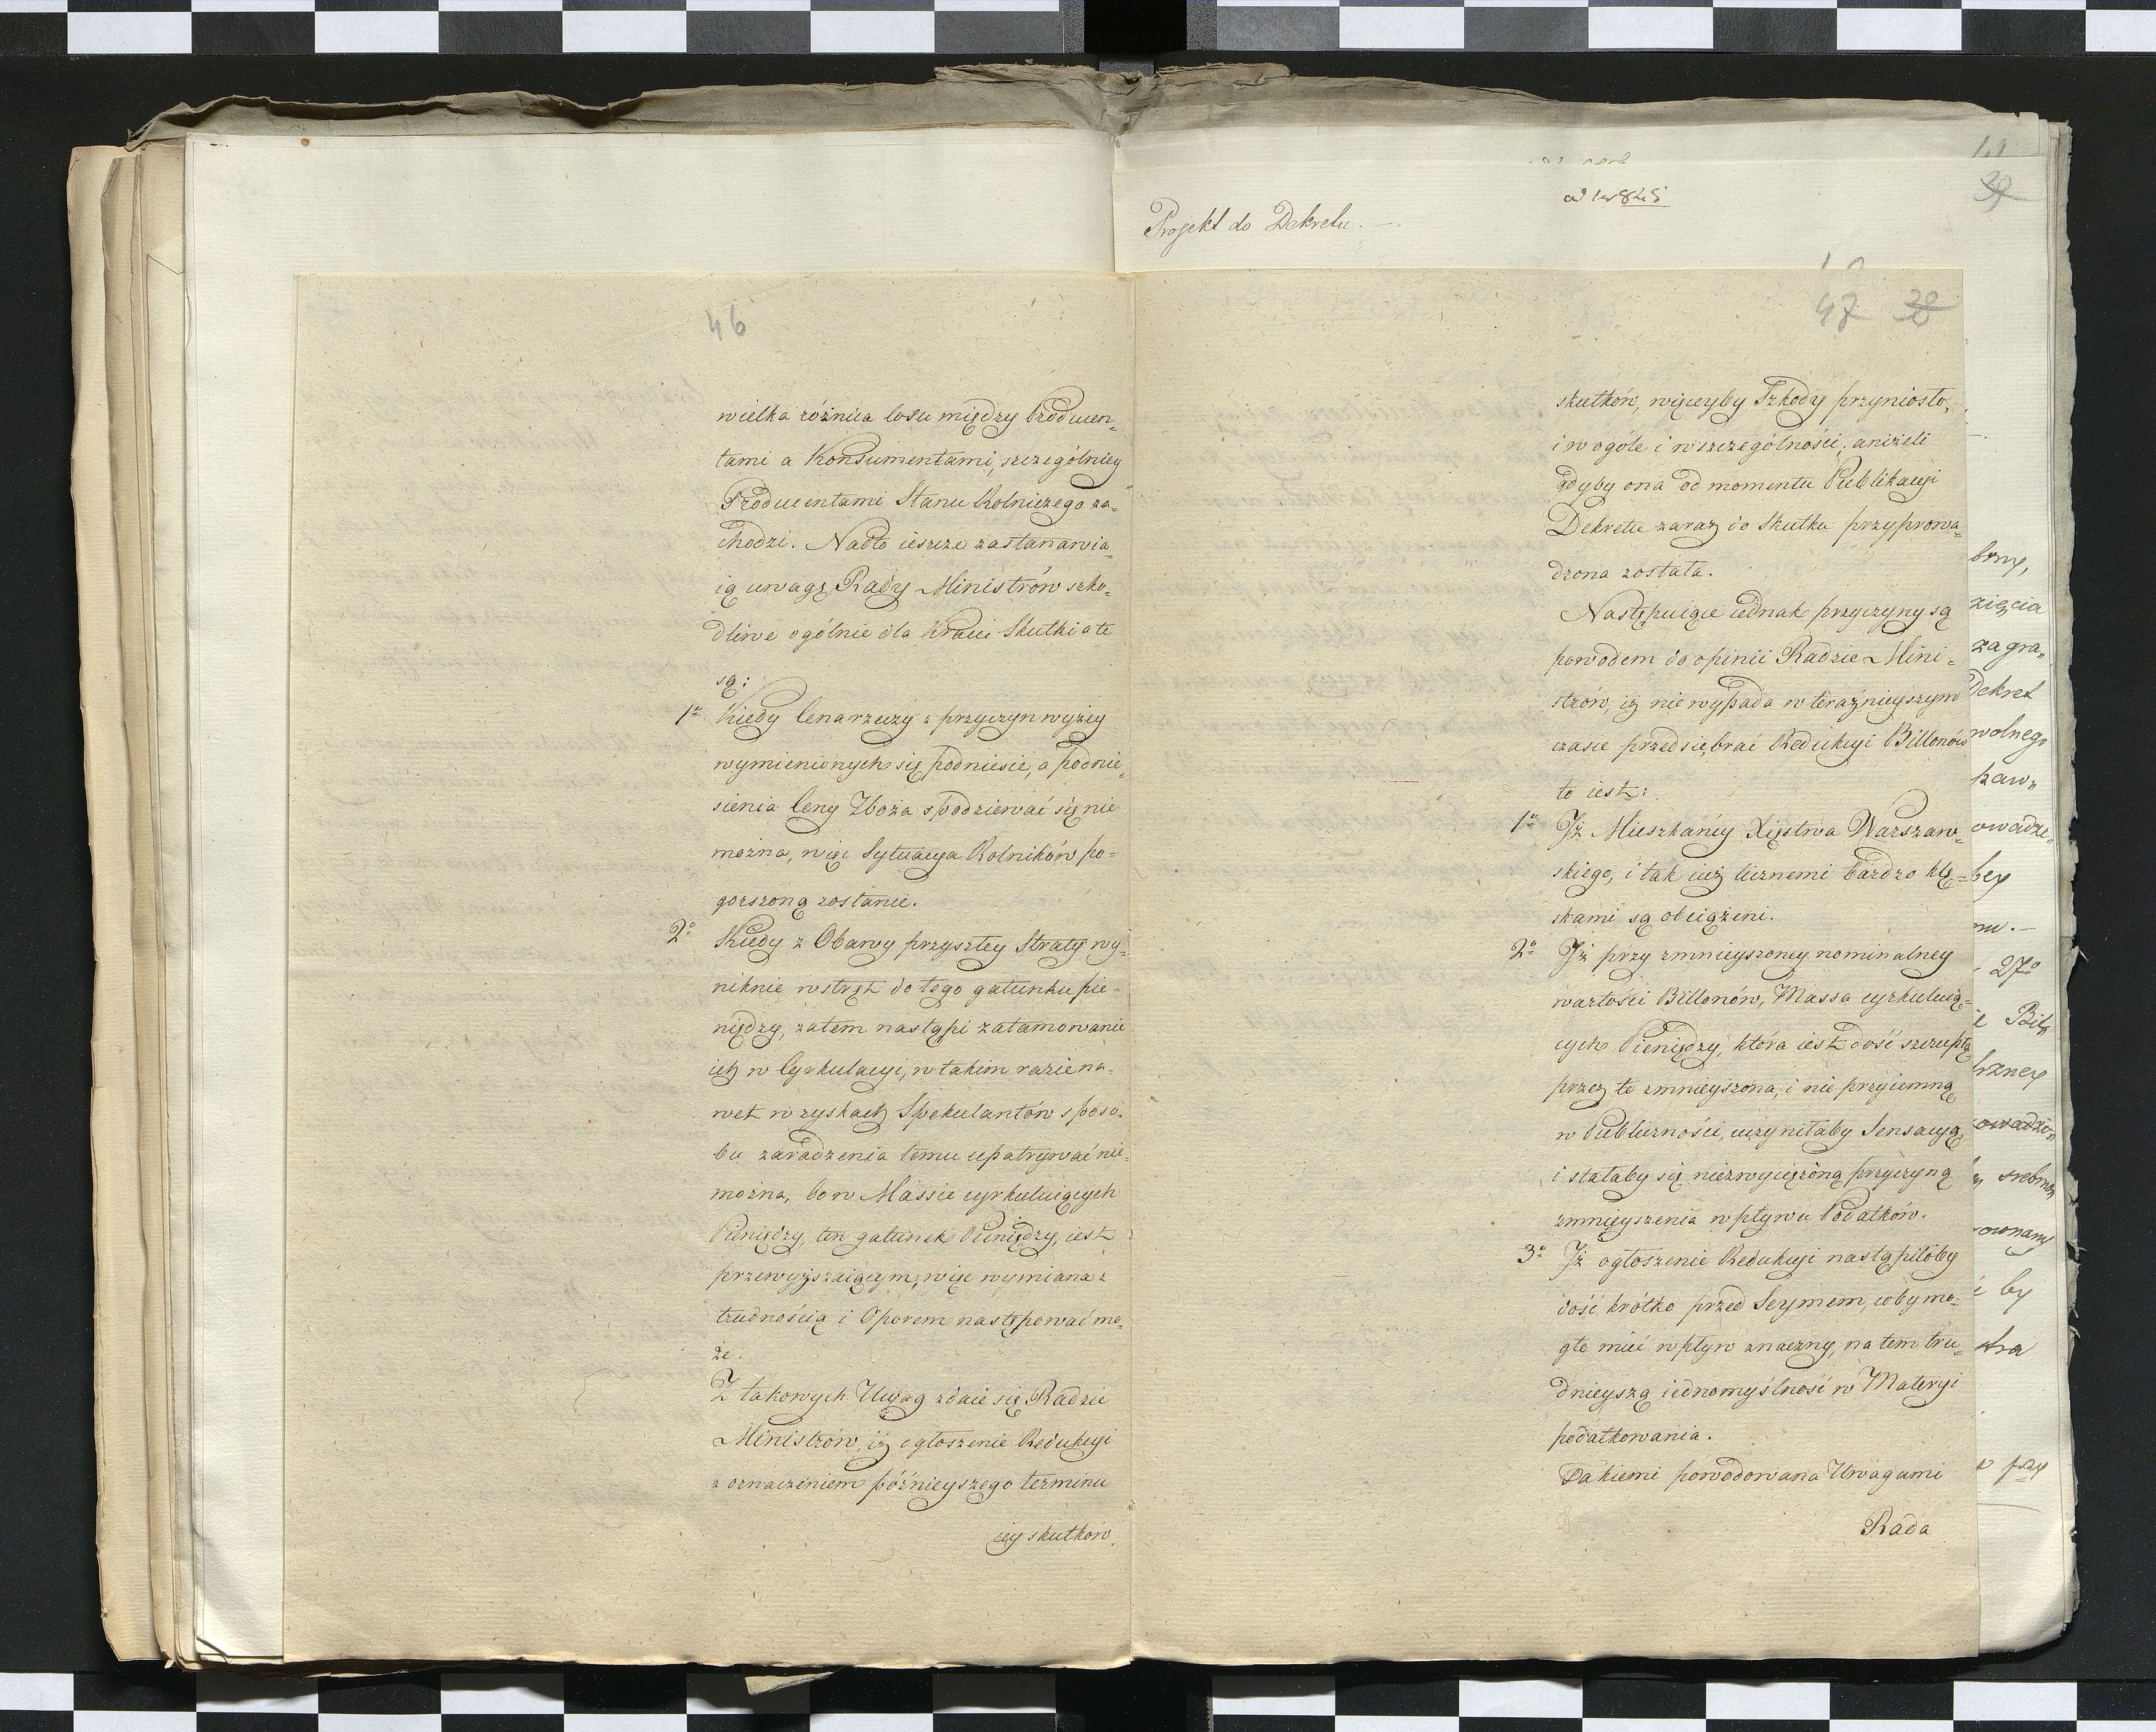 46
wielka różnica losu między Producen-
tami a Konsumentami, szczególniey
Producentami Stanu Rolniczego za-
chodzi. Nadto ieszcze zastanawia-
ią uwagę Rady Ministrów szko-
dliwe ogólnie dla Kraiu Skutki a te
są:
1o Kiedy Cena rzeczy z przyczyn wyżey
wymienionych się podniesie, a podnie-
sienia Ceny Zboża spodziewać się nie
można, więc Sytuacya Rolników po-
gorszoną zostanie.
2o Kiedy z Obawy przyszłey Straty wy-
niknie wstręt do tego gatunku pie-
niędzy, zatem nastąpi zatamowanie
ich w Cyrkulacyi, w takim razie na-
wet w zyskach Spekulantów sposo-
bu zaradzenia temu upatrywać nie-
można, bo w Massie cyrkuluiących
Pieniędzy, ten gatunek Pieniędzy, iest
przewyższaiącym, więc wymiana z
trudnością i Oporem następować mo-
że.
Z takowych Uwag zdaie się Radzie
Ministrów, iż ogłoszenie Redukcyi
z oznaczeniem późnieyszego terminu
iey skutków,
Projekt do Dekretu. —
39
47 38
skutków, więceyby Szkody przyniosło,
i w ogóle i w szczególności, aniżeli
gdyby ona od momentu Publikacyi
Dekretu zaraz do Skutku przyprowa-
dzona została.
Następuiące iednak przyczyny są
powodem do opinii Radzie Mini-
strów, iż nie wypada w teraźnieyszym
czasie przedsiębrać Redukcyi Billonów
to iest:
1o Iż Mieszkańcy Xięstwa Warszaw-
skiego, i tak iuż licznemi bardzo klę-
skami są obciążeni.
2o Iż przy zmnieyszoney nominalney
wartości Billonów, Massa cyrkuluią-
cych Pieniędzy, która iest dość szczupłą
przez to zmnieyszona, i nie przyiemną
w Publiczności, uczyniłaby Sensacyą,
i stałaby się niezwyciężoną przyczyną
zmnieyszenia wpływu Podatków.
3o Iż ogłoszenie Redukcyi nastąpiłoby
dość krótko przed Seymem, coby mo-
gło mieć wpływ znaczny, na tem tru-
dnieyszą iednomyślność w Materyi
podatkowania.
Takiemi powodowana Uwagami
Rada
zięcia
zagra„
Dekret
wolnego
kaw„
owadze„
bey
mu. —
27o
Bil„
owadzo„
srebrn
ownany
by
stra
przy